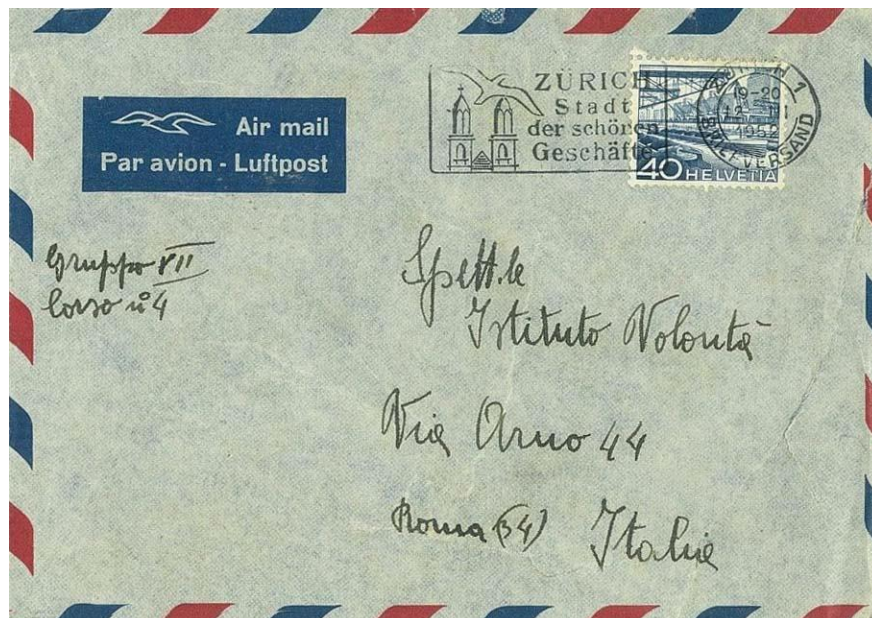 Air mail
Par avion - Luftpost
ZÜRICH
Stadt
der schönen
Geschäfte
ZÜRICH 1
19-20
12
1952
BRIEFVERSAND
40 HELVETIA
Gruppo VII
Corso n° 4
Spett.le
Istituto Volontà
Via Arno 44
Roma (34) Italia